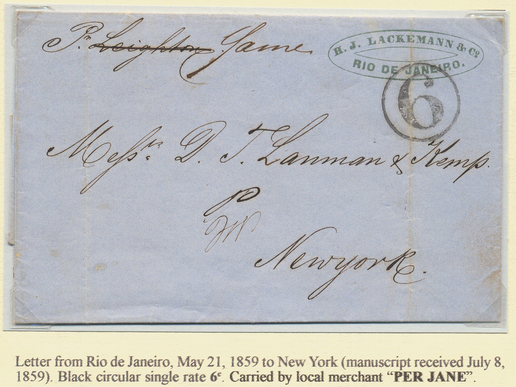 Pr Leighton Jane
H. J. LACKEMANN & Co
RIO DE JANEIRO.
6
Messrs. D. T. Lanman & Kemp.
Newyork.
Letter from Rio de Janeiro, May 21, 1859 to New York (manuscript received July 8,
1859). Black circular single rate 6c. Carried by local merchant “PER JANE”.